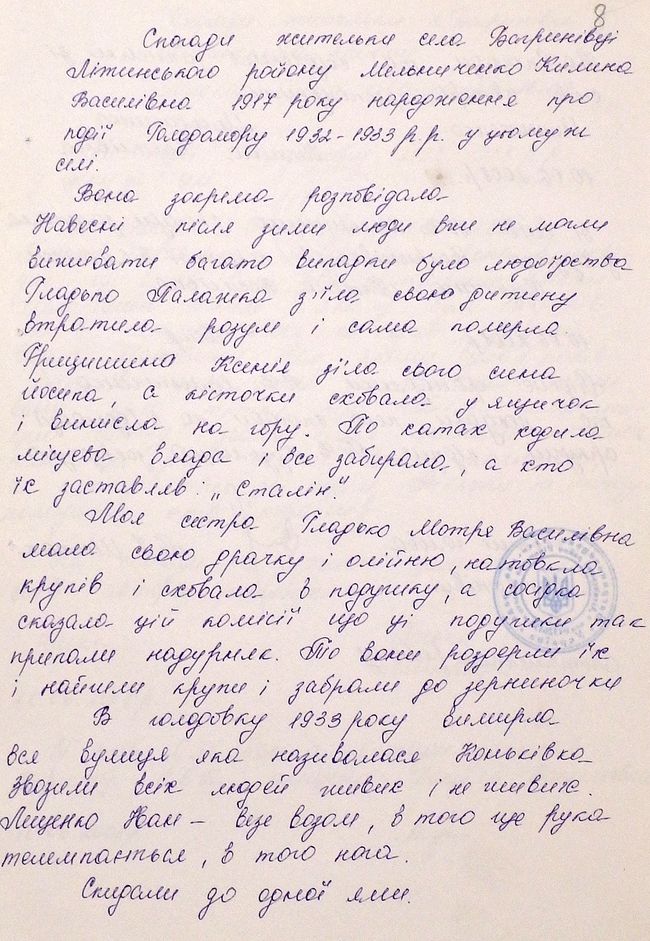 8
Спогади жительки села Багринівці
Літинського району Мельниченко Килина
Василівна 1917 року народження про
події Голодомору 1932-1933 р.р. у цьому ж
селі.
Вона зокрема розповідала
Навесні після зими люди вже не могли
виживати багато випадки було людоїрства
Гладько Палажка зїіла свою дитину
втратила розум і сама померла.
Грицишена Ксенія зіла свого сина
Йосипа, а кісточки сховала у ящичок
і винисла на гору. По катах ходила
місцева влада і все забирала, а хто
їх заставляв: „Сталін."
Моя сестра Гладько Мотря Василівна
мала свою драчку і олійню, натовкла
крупів і сховала в подушку, а сосідка
сказала цій комісії що ці подушки так
припали надурняк. То вони роздерли їх
і найшли крупи і забрали до зерниночки
В голодовку 1933 року вимирла
вся вулиця яка називалася Коньківка
Звозили всіх людей живих і не живих.
Лищенко Іван – везе возом, в того ще рука
телемпається, в того нога.
Скидали до одної ями.